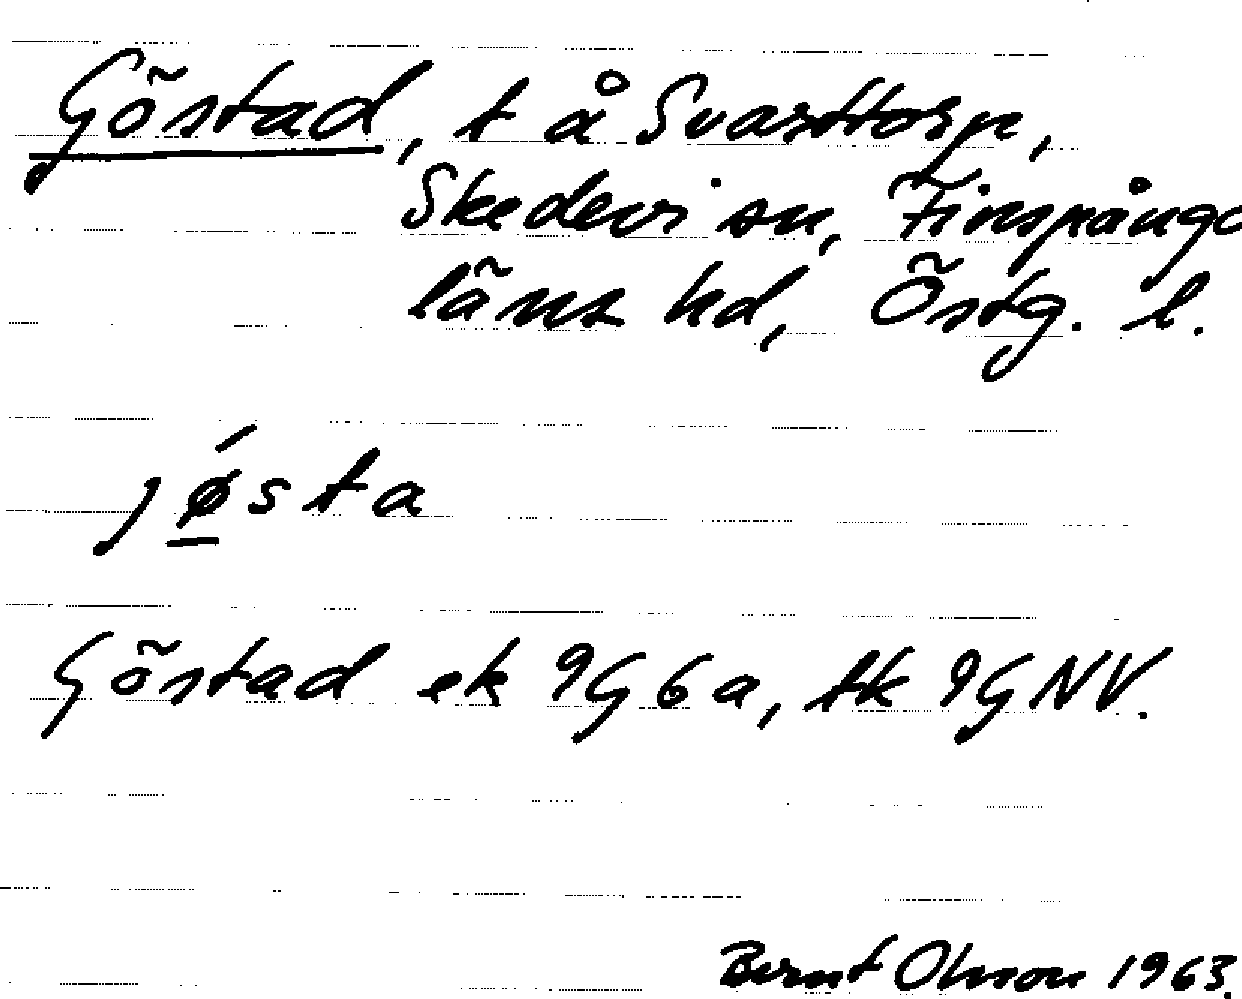 Göstad, t å Svarttorp,
Skedevi sn, Finspånga
läns hd, Östg. l.
jǿsta
Göstad ek 9G6a, tk 9GNV.
Bernt Olsson 1963.